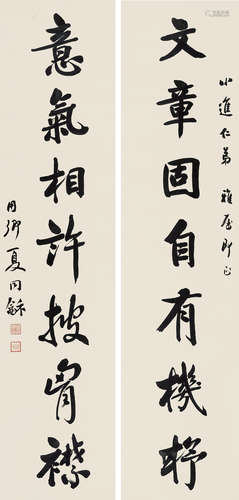 小進仁弟 雅屬
文章固自有機杼
意氣相許披胷襟
用卿夏同龢